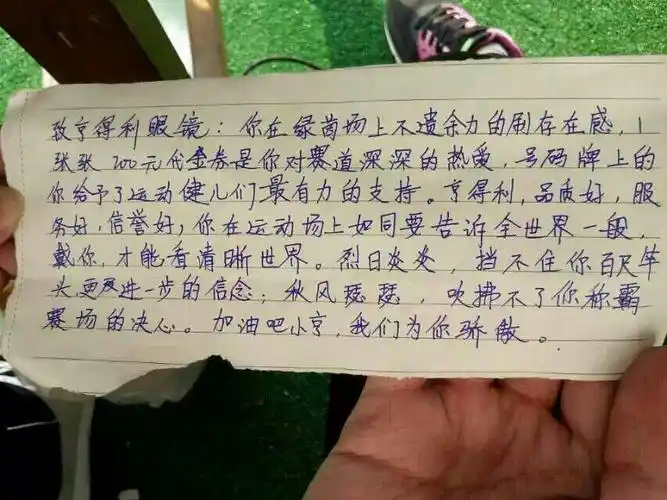 致亨得利眼镜：你在绿茵场上不遗余力的刷存在感，1
张张200元代金券是你对赛道深深的热爱，号码牌上的
你给予了运动健儿们最有力的支持。亨得利，品质好，服
务好，信誉好，你在运动场上如同要告诉全世界一般，
戴你，才能看清晰世界。烈日炎炎，挡不住你百尺竿
头更进一步的信念；秋风瑟瑟，吹拂不了你称霸
赛场的决心。加油吧小亨，我们为你骄傲。